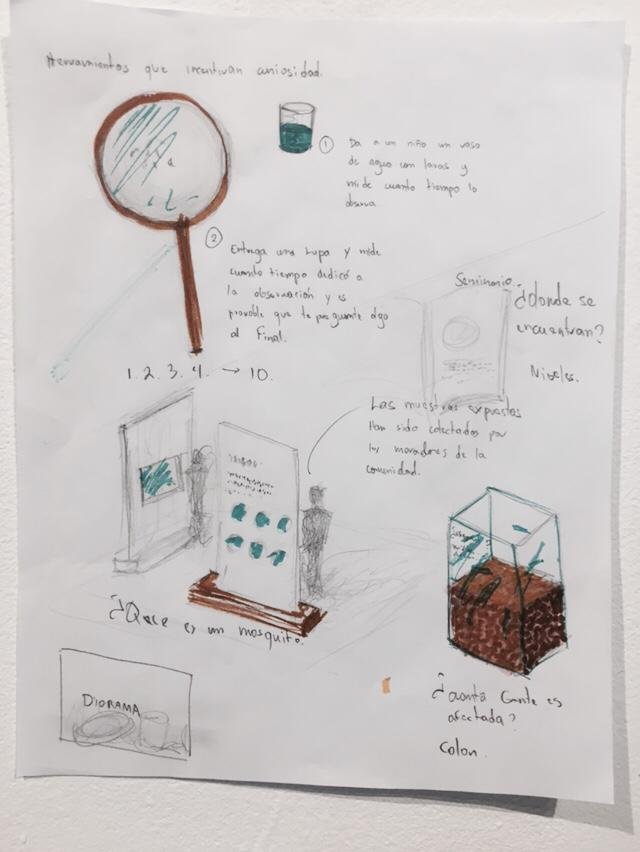 Herramientas que incentivan curiosidad.
①
Da a un niño un vaso
de agua con larvas y
mide cuanto tiempo lo
observa
②
Entrega una Lupa y mide
cuanto tiempo dedicó a
la observación y es
provable que te pregunte algo
al Final.
1. 2. 3. 4. → 10.
Seminario.
¿donde se
encuentran?
Niveles.
Las muestras expuestas
Han sido colectados por
los moradores de la
comunidad.
¿Qece es un mosquito.
DIORAMA
¿cuanta Gente es
afectada?
Colon.